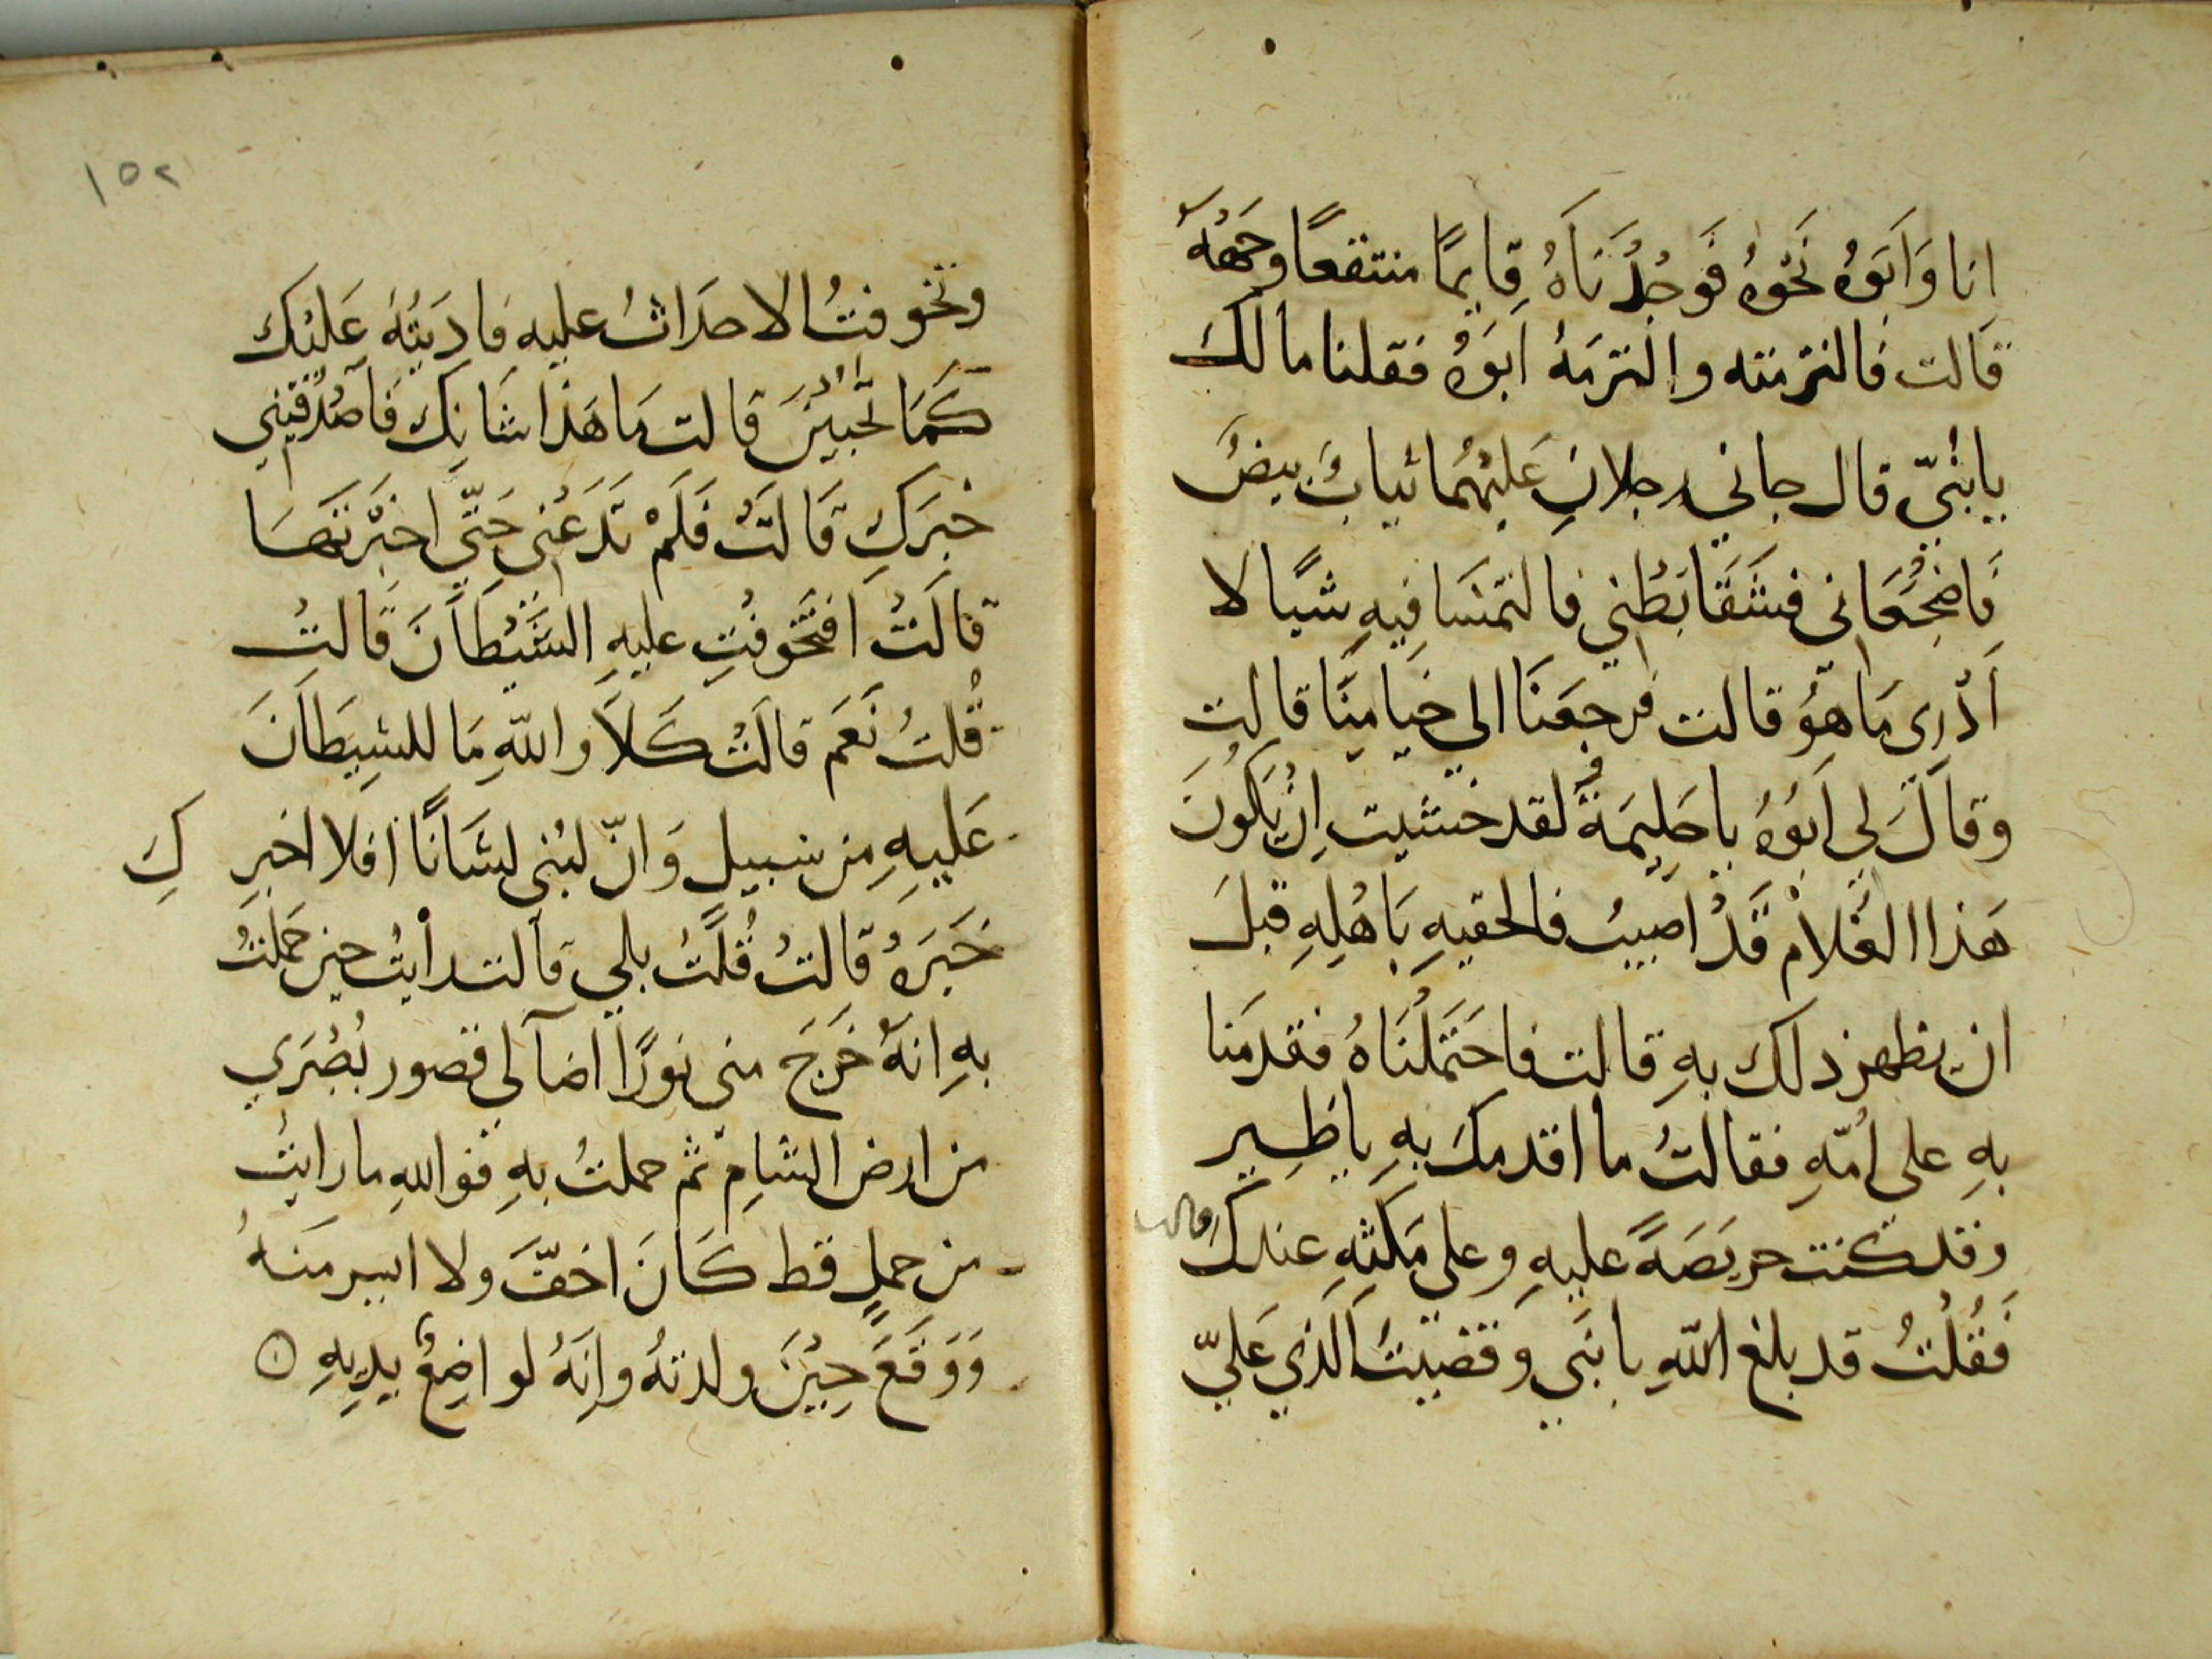 انا وَاَبَوُه نَحْوهُ فَوَجُدْنَاهُ قِايمًا منتقعًا وجَههُ
قَالت فالتزمته والتزمَهُ ابَوهُ فقلنا مالكَ
يابُنيّ قال جاني رجلانِ عَليْهُمِا ثيابٌ بيضٌ
فَاضجُعَاني فشَقَّا بَطْني فالتمَسَا فيهِ شَيًا لا
اَدْرِي مَا هَوُ قالت فرجعَنَا الي خيامِنَا قالتِ
وَقَالَ لِي اَبُوُهُ ياحَلِيمَةُ لقد خشيت اِنْ يَكُونَ
هَذا الغُلامْ قَدْ اصيبُ فالحقيهِ بَاهْلِهِ قبلَ
ان يظهر ذلك بهِ قالت فاحتَملْنَاهُ فقدمَنا
بهِ علي اُمّهِ فقالتُ ما اقدمكَ بهِ ياظِيِر
وقد كنت حريَصَةً عليهِ وعلي مَكثهِ عندكَ
قالت
فَقُلْتُ قد بلغ اللّهِ بابَني وَقضيتُ الَذي عَليّ
١٥٢
وتخوفتُ الاحدَاثُ عليهِ فاديَتُهُ عَليْكِ
كَمَا تُحبيِّنَ قالت مَا هَذا شَانِكَ فَاصدُقيني
خبَرَكِ قَالَتْ فَلَمْ تَدَعْنِي حَتّي اخبَرْتَهَا
قالَتُ اَفتَخَوفْتِ عليهِ الشَّيْطَانَ قَالتُ
قُلتُ نَعَم قالَتْ كَلاَ واللّهِ مَا للشيِطَانَ
عَليهِ مِن سبيلٍ وَانّ لبُني لشَانًا افلا اخبرِكِ
خَبَرَهُ قالتُ قُلْتُ بلي قالت رأيتُ حين حَملتُ
بهِ انهُ خَرَجَ مني نورًا اضآ لي قصور بُصْرَي
من ارض الشامِ ثم حملتُ بهِ فوالله ما رايتُ
من حملٍ قط كَانَ اخَفَّ ولا ايسر منهُ
وَوَقَعَ حِيْنَ ولدتهُ وانَهُ لو اضِعٌ يديهِ